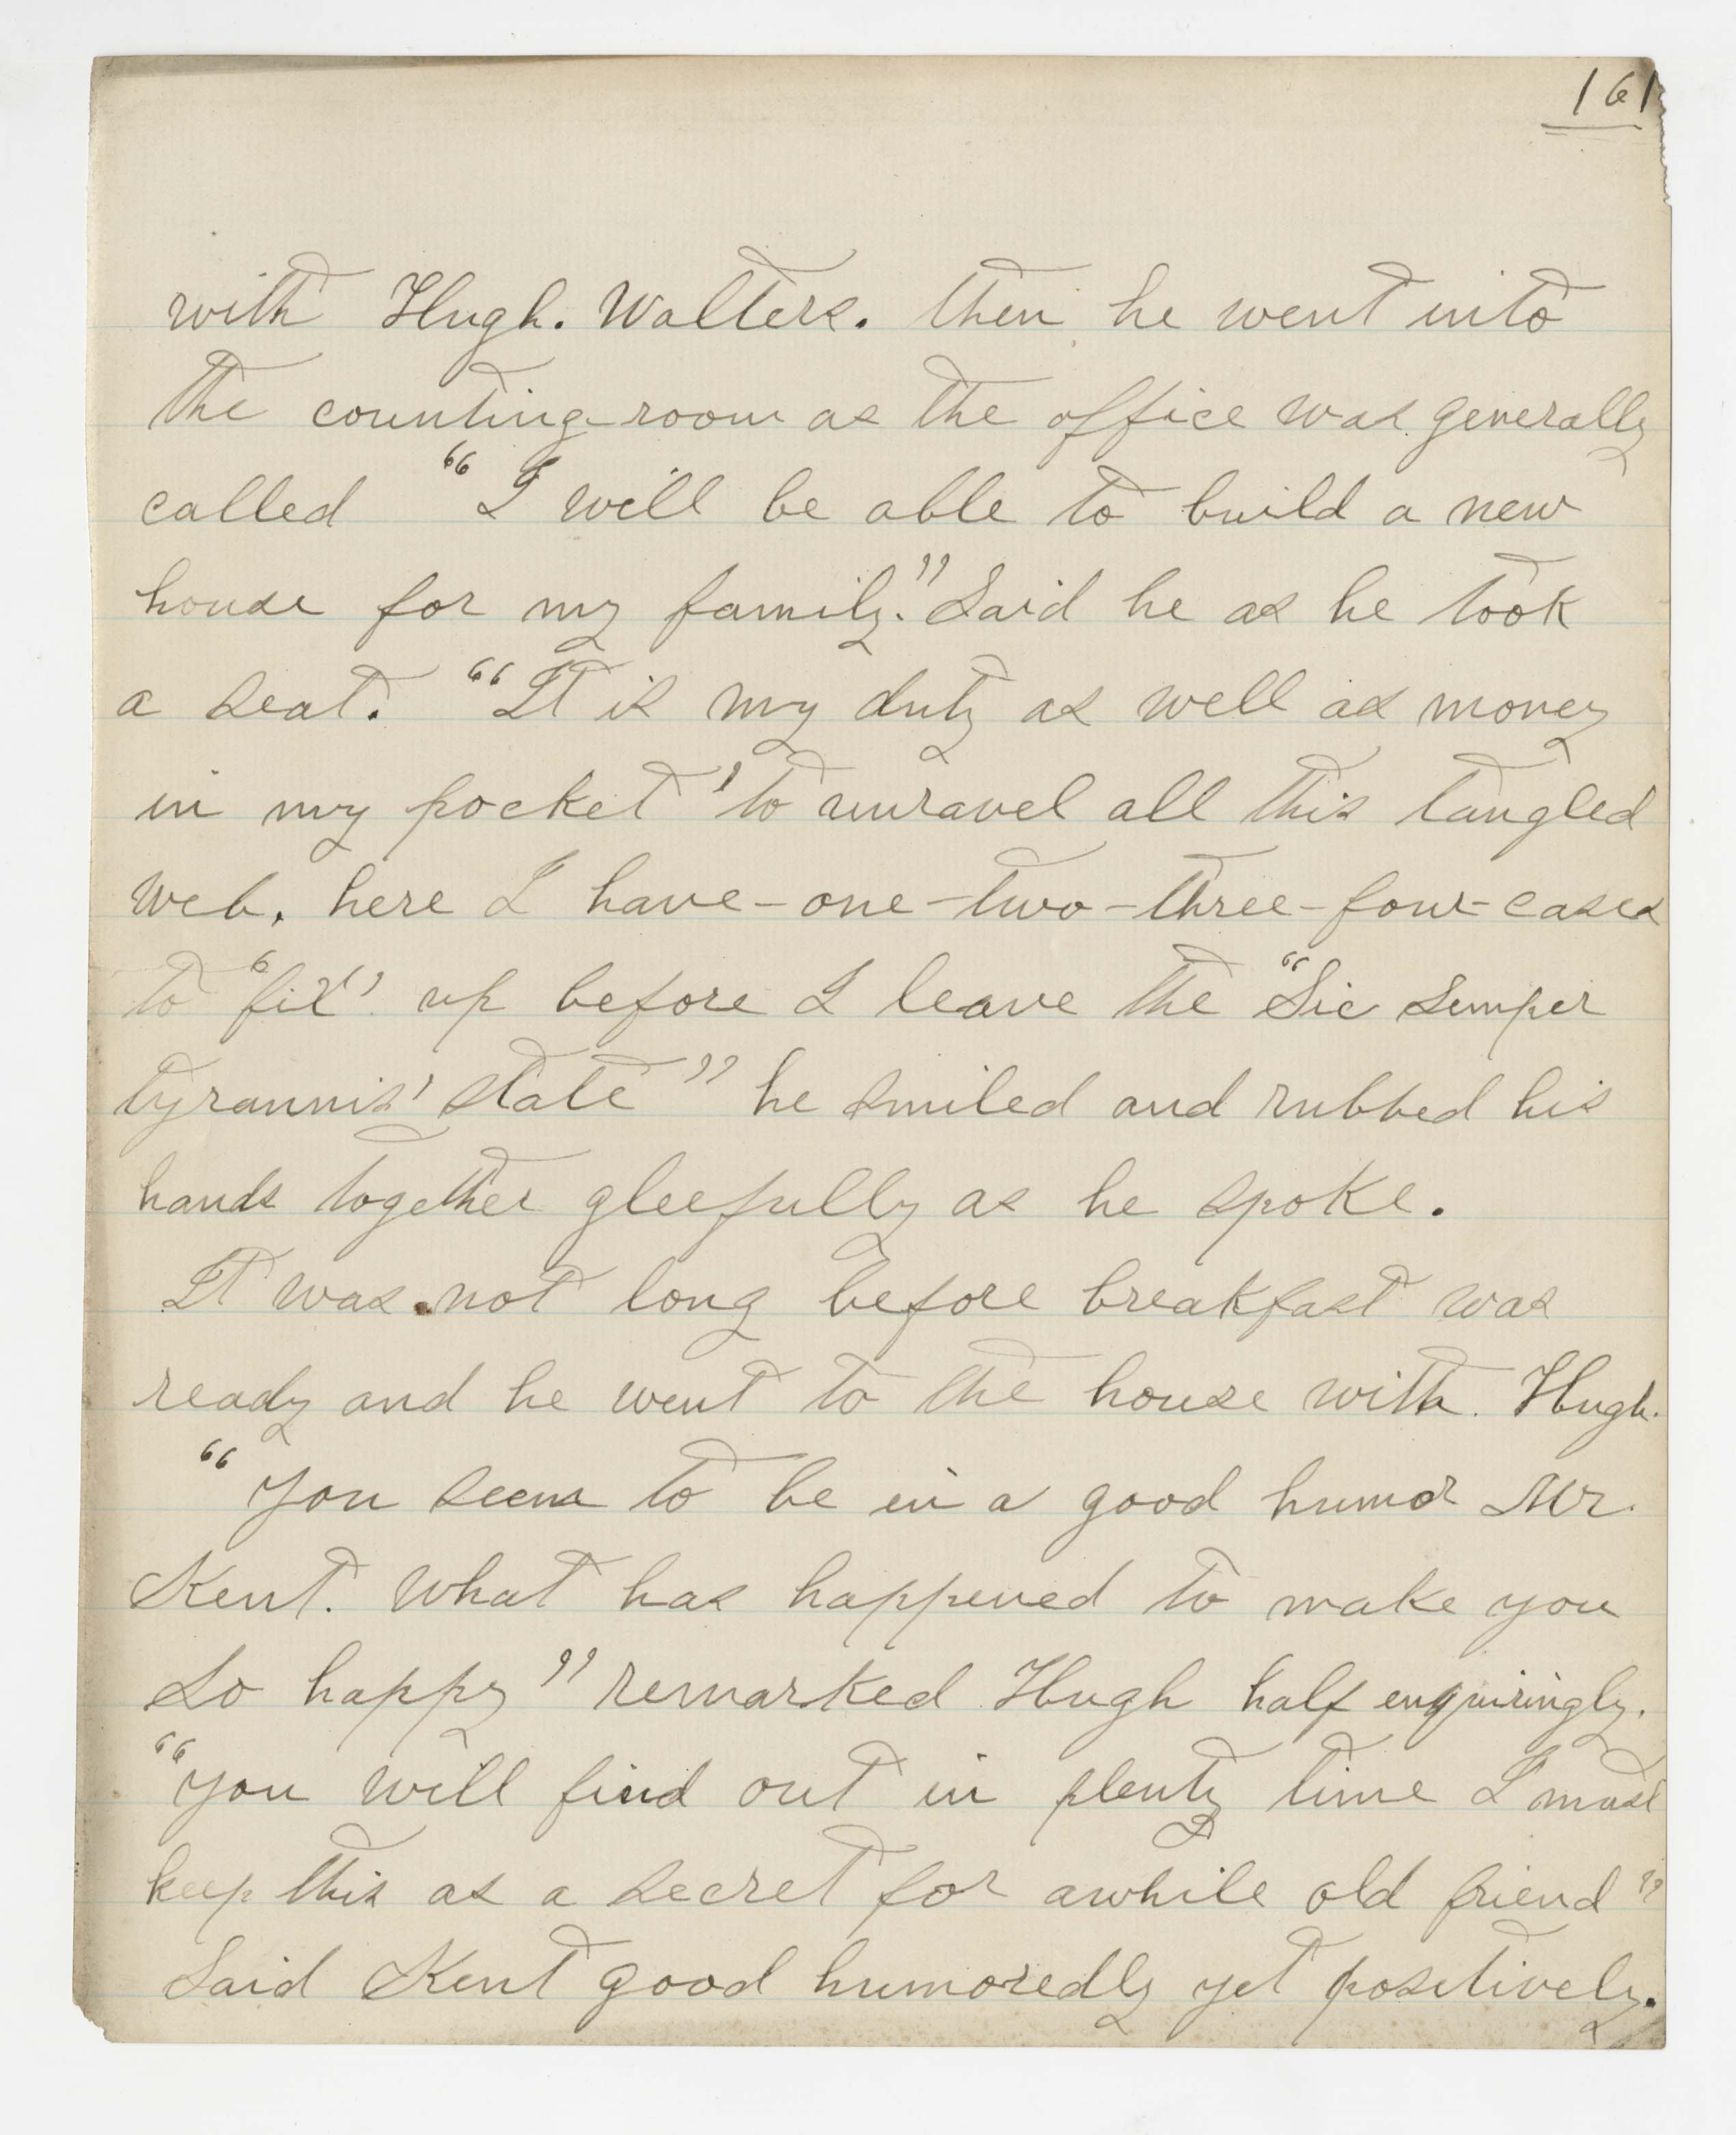 161
with Hugh. Walters. then he went into
the counting-room as the office was generally
called "I will be able to build a new
house for my family." Said he as he took
a seat. "It is my duty as well as money
in my pocket 'to unravel all this tangled
web. here I have - one - two - three - four - cases
to "fix" up before I leave the "Sic Semper
tyrannis' state" he smiled and rubbed his
hands together gleefully as he spoke.
It was not long before breakfast was
ready and he went to the house with. Hugh.
"You seem to be in a good humor Mr.
Kent. What has happened to make you
so happy" remarked Hugh half enquiringly.
"You will find out in plenty time I must
keep this as a secret for awhile old friend"
Said Kent good humoredly yet positively.